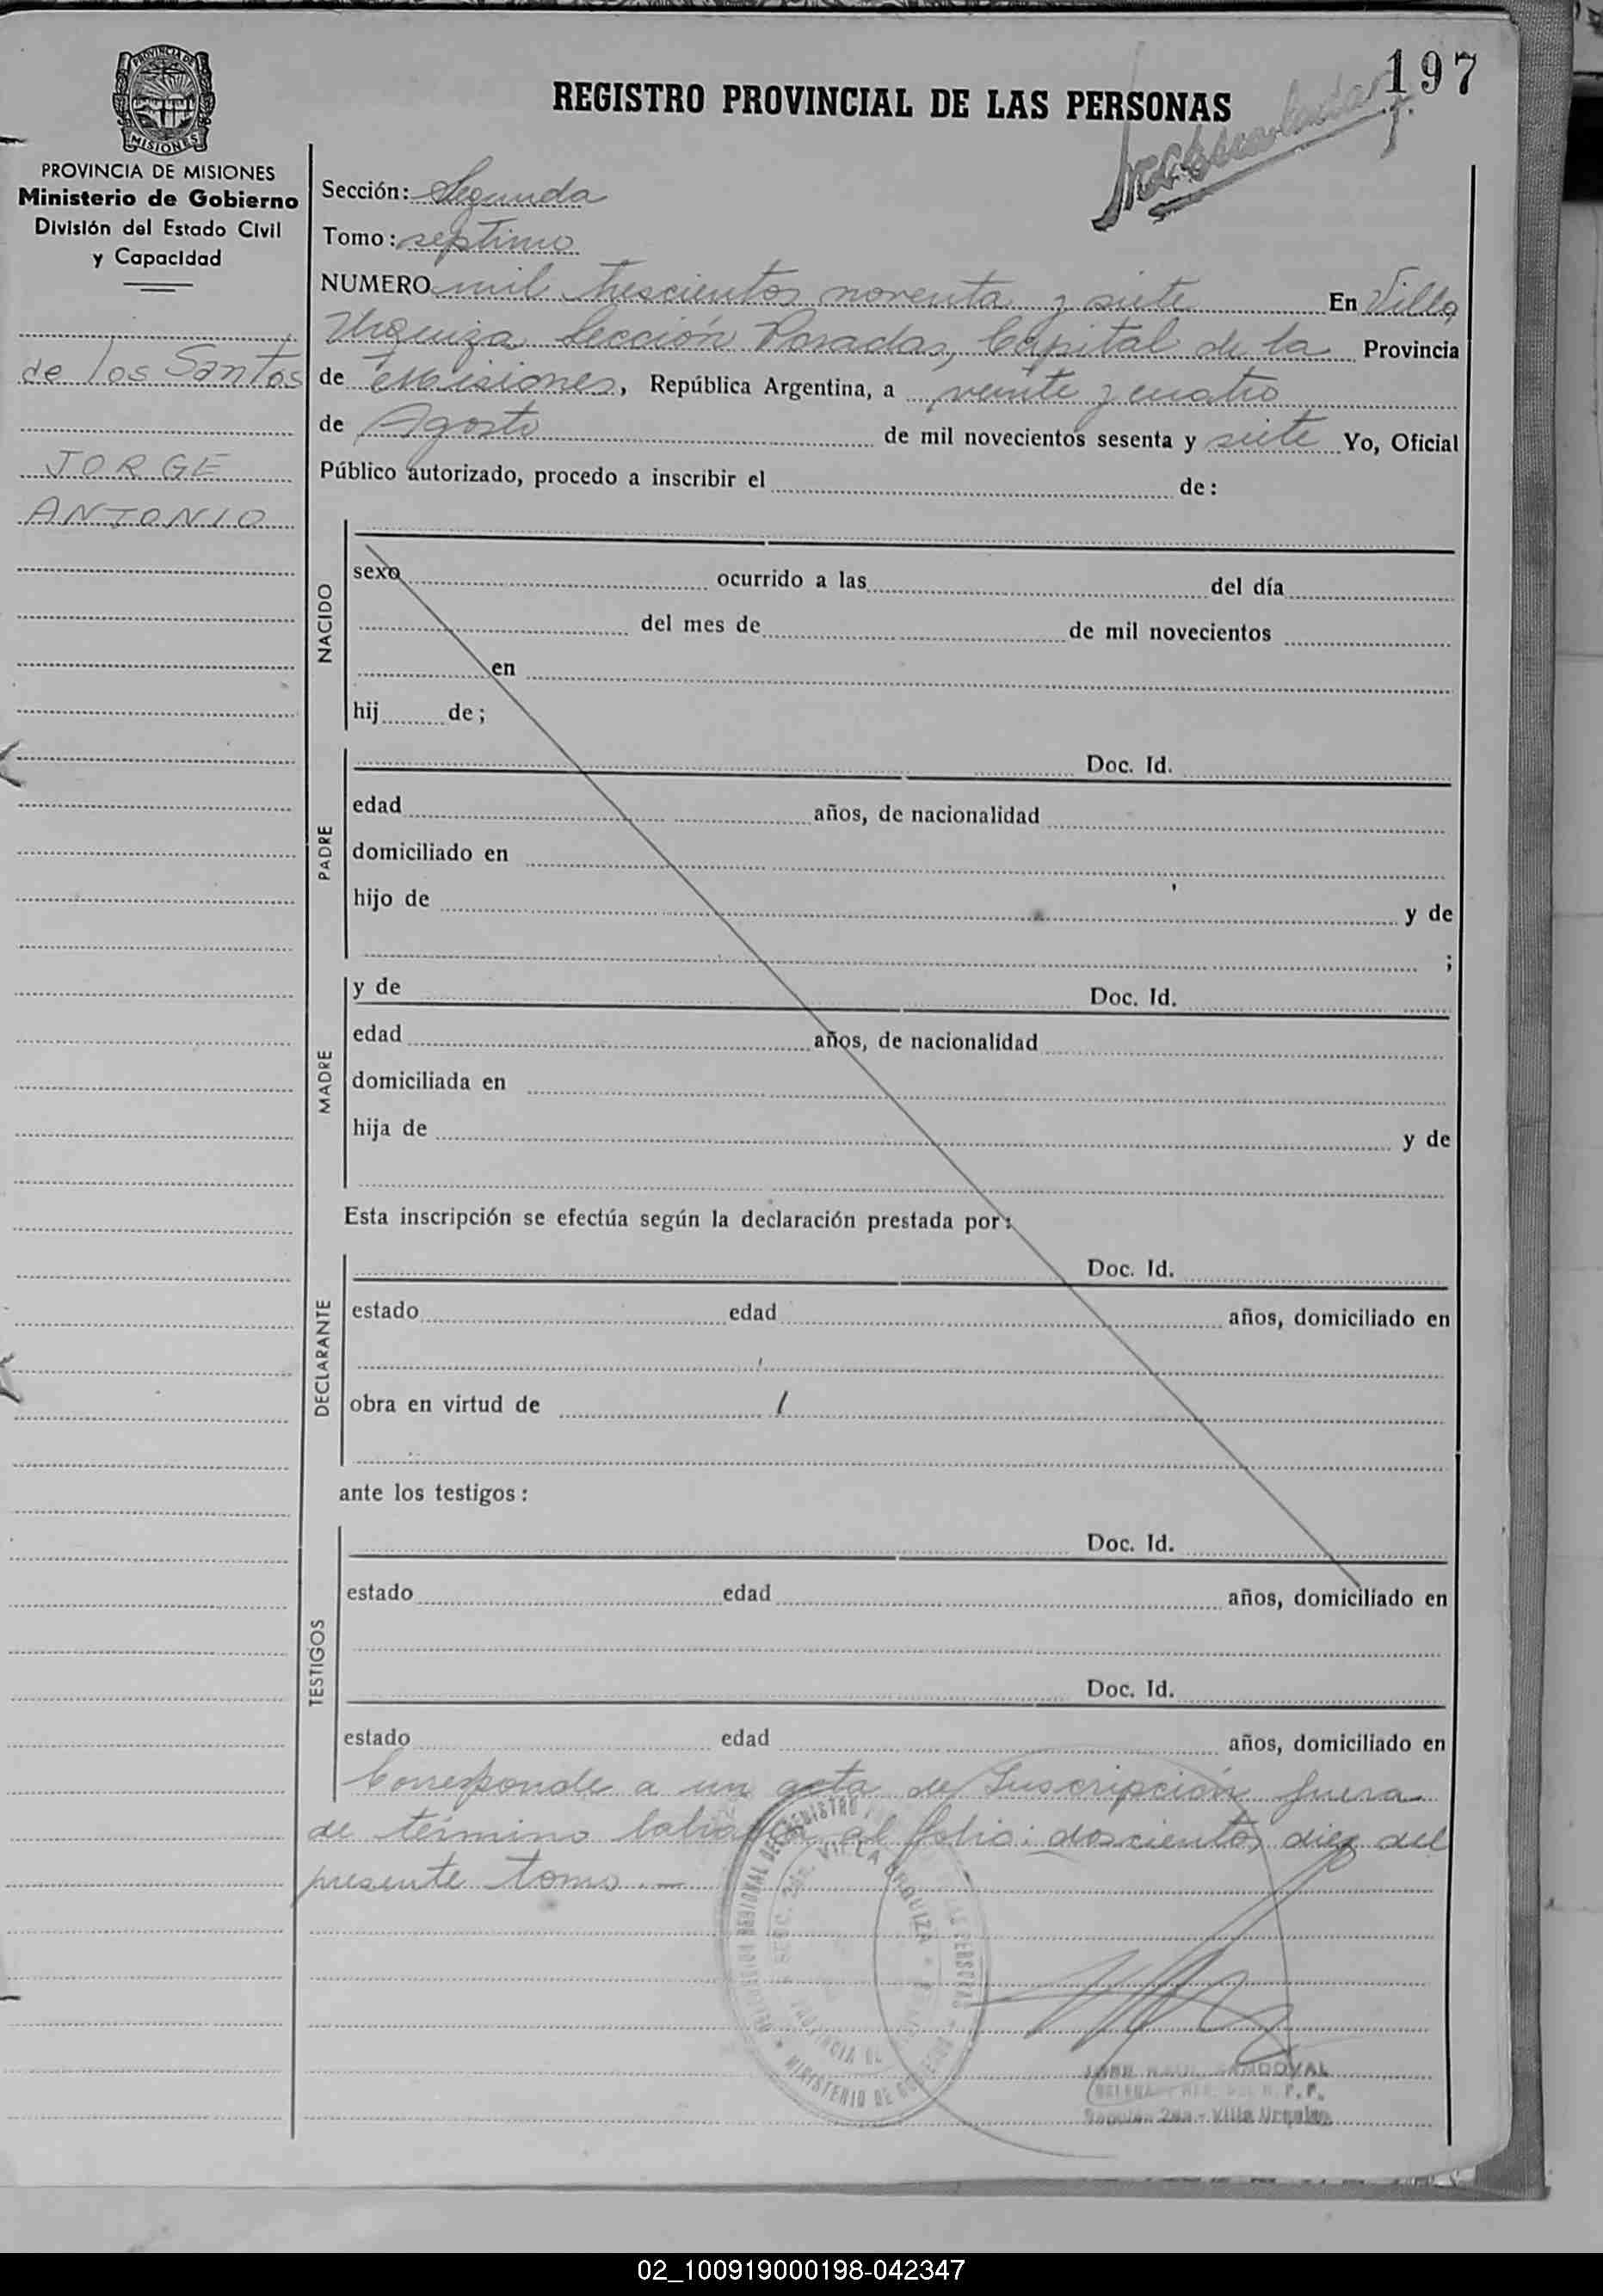 197
REGISTRO PROVINCIAL DE LAS PERSONAS
PROVINCIA DE
MISIONES
PROVINCIA DE MISIONES
Ministerio de Gobierno
División del Estado Civil
y Capacidad
de los Santos
JORGE
ANTONIO
Sección: Segunda
Tomo: septimo
NUMERO mil trescientos noventa y siete En Villa
Urquiza Sección Posadas, Capital de la Provincia
de Misiones, República Argentina, a veinte y cuatro
de Agosto de mil novecientos sesenta y siete Yo, Oficial
Público autorizado, procedo a inscribir el de:
NACIDO
sexo ocurrido a las del día
del mes de de mil novecientos
en
hij de;
PADRE
Doc. Id.
edad años, de nacionalidad
domiciliado en
hijo de y de
;
MADRE
y de Doc. Id.
edad años, de nacionalidad
domiciliada en
hija de y de
Esta inscripción se efectúa según la declaración prestada por:
DECLARANTE
Doc. Id.
estado edad años, domiciliado en
obra en virtud de
ante los testigos:
TESTIGOS
Doc. Id.
estado edad años, domiciliado en
Doc. Id.
estado edad años, domiciliado en
Corresponde a un acta de Inscripción fuera
de término labrada al folio: doscientos diez del
presente tomo.—
VILLA URQUIZA
MINISTERIO DE
SANDOVAL
Sección 2da - Villa Urquiza
02_100919000198-042347